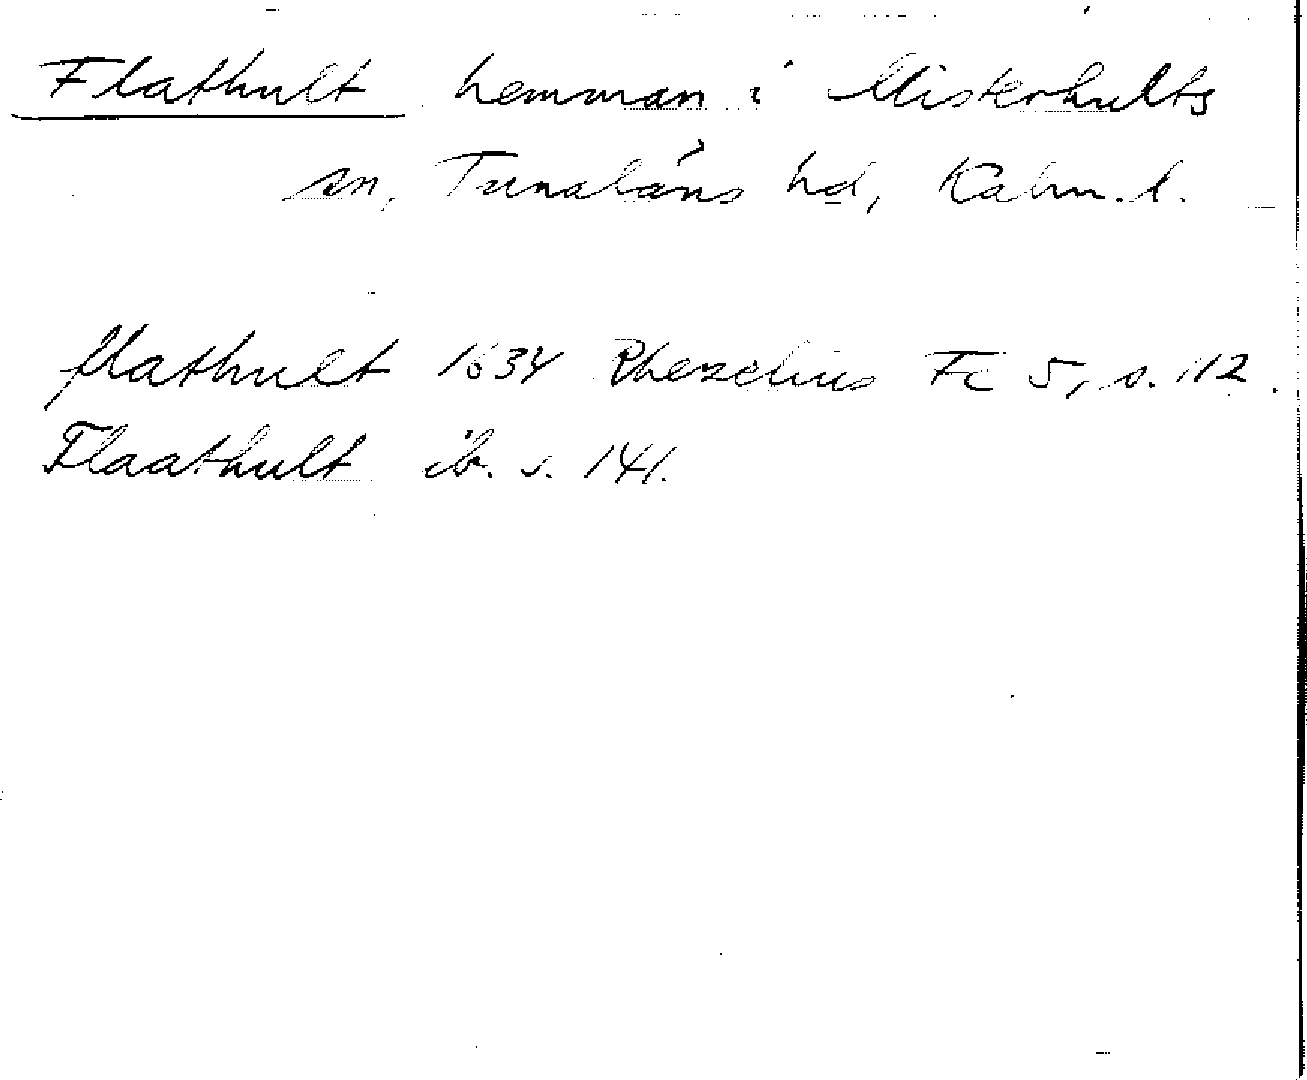 Flathult hemman i Misterhults
sn, Tunaläns hd, Kalm. l.
flathult 1634 Rhezelius Fc 5, s. 112.
Flaathult ib. s. 141.